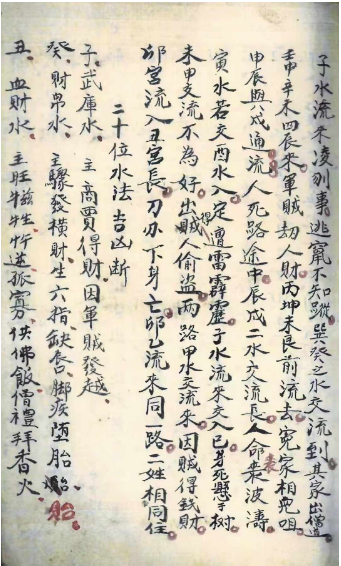 子水流來凌刑事逃竄不知蹤巽癸之水交流到其家出僧道
壬辛未四辰來軍賊刼人財丙坤未艮前流去冤家相咒咀
甲辰與戌通流人死路途中辰戌二水交流長人命喪波濤
寅水若交酉水入定遭雷霹靂子水流來交入巳身死懸于樹
未甲支流不為好出賊人偷盜兩路甲水交流來因賊得錢財
邜宮流入丑宮長刀办下身亡邜乙流來同一路二姓相同住
二十位水法吉凶斷
子武庫水主商賈得財因軍賊發越
癸財帛水主驟發橫財生六指缺唇脚疾堕胎胎
丑血財水主旺犧牲忤逆孤寡供佛飯僧禮拜香火